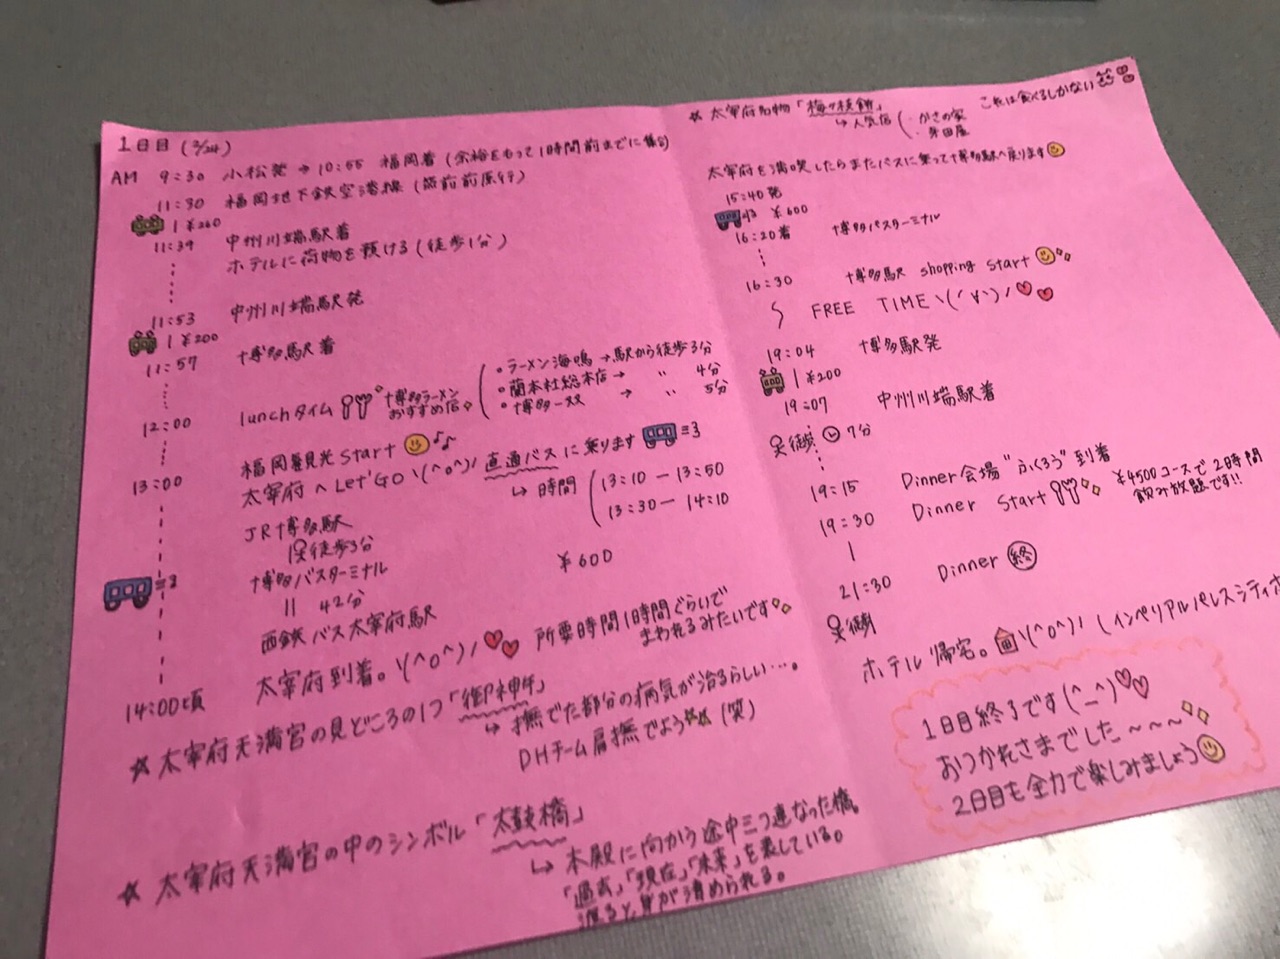 1日目(2/24)
AM 9:30 小松発→10:55 福岡着(余裕をもって1時間前までに集合)
11:30 福岡地下鉄空港線(筑前前原行)
¥260
11:39 中州川端駅着
ホテルに荷物を預ける(徒歩1分)
11:53 中州川端駅発
¥200
11:57 博多駅着
12:00 lunchタイム 博多ラーメン おすすめ店
・ラーメン海鳴→駅から徒歩3分
・蘭本社総本店→ 〃 4分
・博多一双 → 〃 5分
福岡観光start
13:00 太宰府へLet'GO\(^o^)/ 直通バスに乗ります
↳時間 13:10-13:50
13:30-14:10
JR博多駅
徒歩3分
博多バスターミナル
¥600
|| 42分
西鉄バス太宰府駅
14:00頃 太宰府到着。\(^o^)/ 所要時間1時間ぐらいで
まわれるみたいです
☆太宰府天満宮の見どころの1つ「御神牛」
↳撫でた部分の病気が治るらしい…。
DHチーム肩撫でよう(笑)
☆太宰府天満宮の中のシンボル「太鼓橋」
↳本殿に向かう途中三つ連なった橋。
「過去」「現在」「未来」を表している。
渡ると身が清められる。
☆太宰府名物「梅ヶ枝餅」 これは食べるしかない
↳人気店 ・かさの家
太宰府を満喫したらまたバスに乗って博多駅へ戻ります
15:40発
¥600
16:20着 博多バスターミナル
16:30 博多駅 shopping start
FREE TIME\(´∀`)/
19:04 博多駅発
¥200
19:07 中州川端駅着
徒歩 7分
19:15 Dinner会場"ふくろう"到着
19:30 Dinner Start ¥4500コースで2時間
飲み放題です!!
21:30 Dinner 終
徒歩
ホテル帰宅。\(^o^)/(インペリアルパレスシティホ
1日目終了です(^_^)
おつかれさまでした～～～
2日目も全力で楽しみましょう